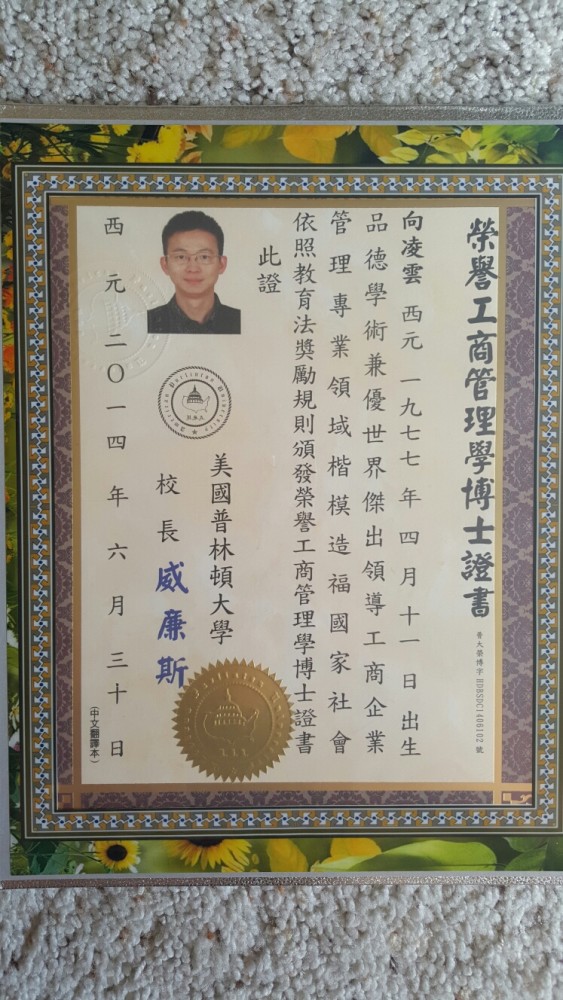 榮譽工商管理學博士證書
普大榮博字HDBSDC1406102號
向凌雲 西元一九七七年四月十一日出生
品德學術兼優世界傑出領導工商企業
管理專業領域楷模造福國家社會
依照教育法獎勵規則頒發榮譽工商管理學博士證書
此證
美國普林頓大學
校長 威廉斯
西元二〇一四年六月三十日
(中文翻譯本)